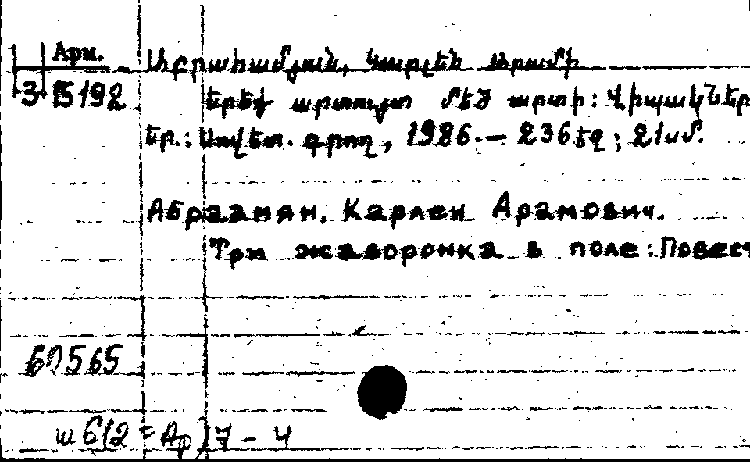 Арм.
3-15192
Աբրահամյան, Կարլեն Արամի
Երեք արտույտ մեծ արտի: Վիպակներ
Եր.: Սովետ. գրող, 1986.- 236 էջ; 21սմ.
Абраамян. Карлен Арамович.
Три жаворонка в поле: Повест
60565
ш 612 = Ар 17-4